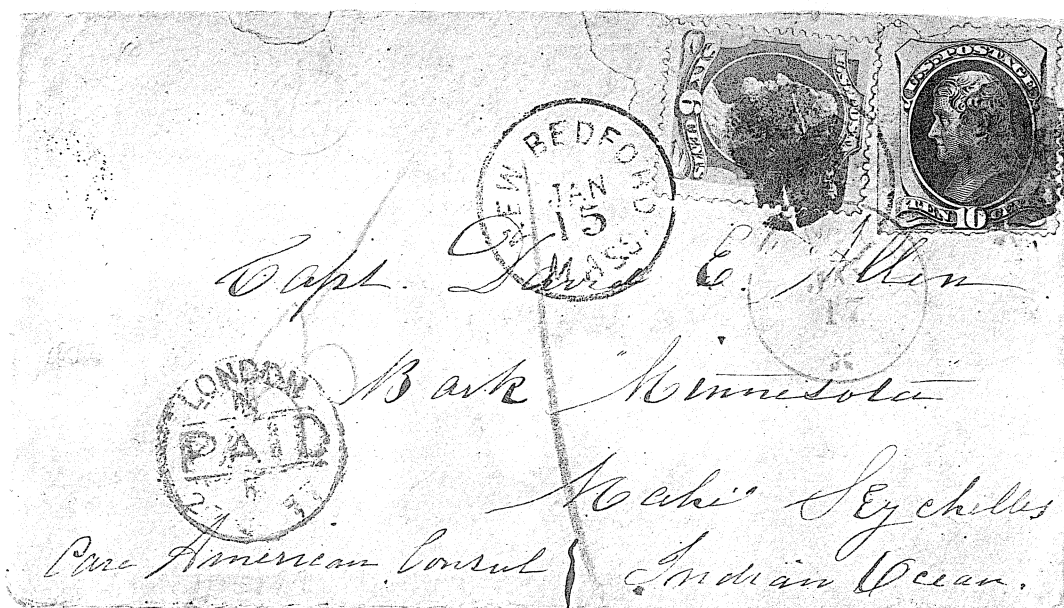 U.S. POSTAGE
6
U.S. POSTAGE
TEN 10 CENTS
NEW BEDFORD MASS.
JAN
15
Capt. David E. Allen
17
Bark "Minnesota"
LONDON
PAID
Mahé Seychelles
Care American Consul } Indian Ocean.